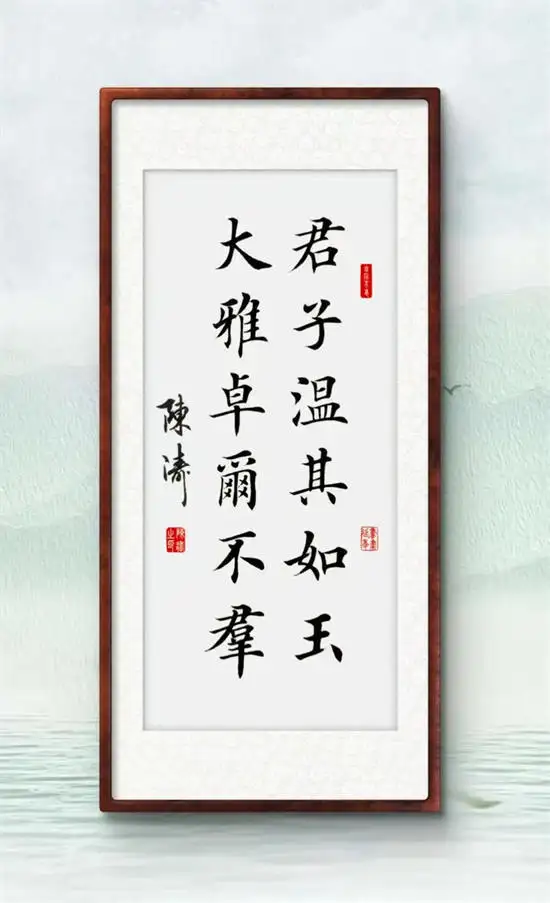 君子温其如玉
大雅卓爾不羣
陳濤